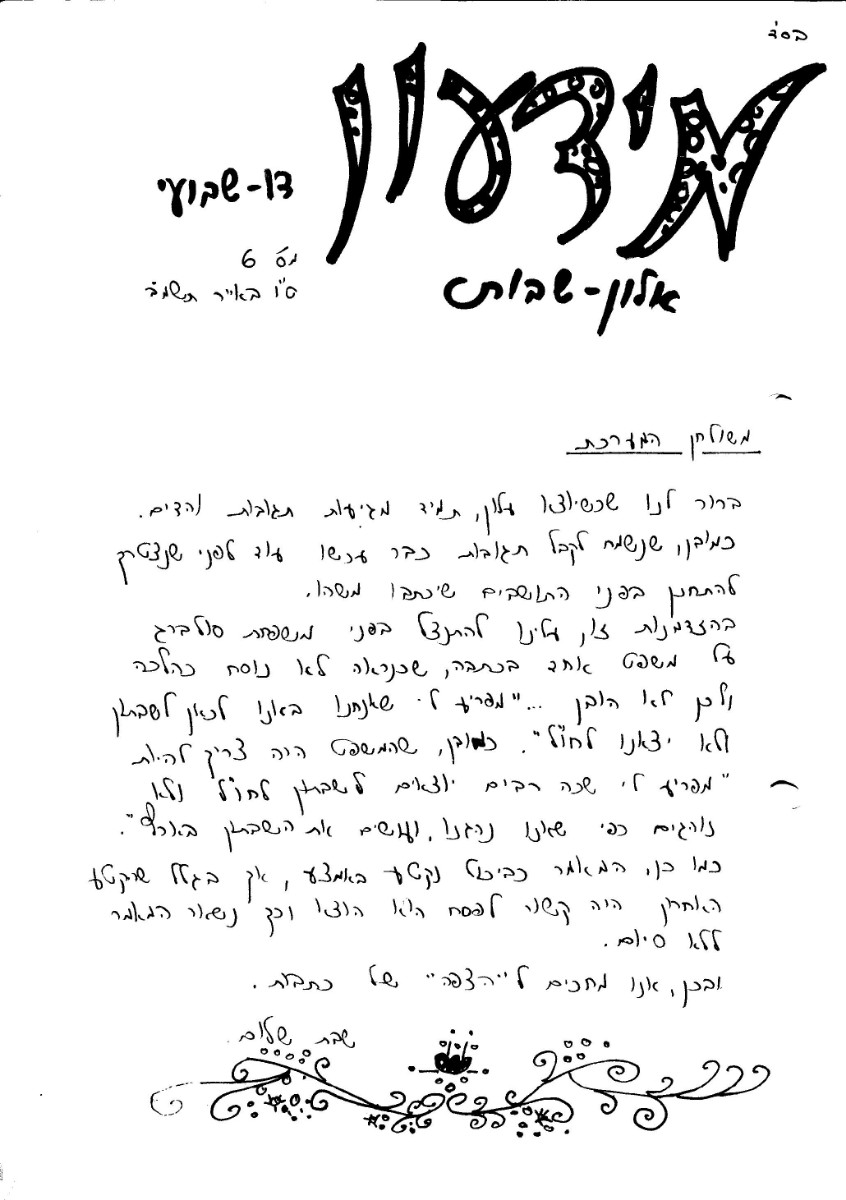 בס"ד
מידעון
דו-שבועי
אלון-שבות
מס' 6
ט"ו באייר תשמ"ב
משולחן המערכת
ברור לנו שכשיוצא עלון, תמיד מגיעות תגובות והדים.
כמובן, שנשמח לקבל תגובות כבר עכשו עוד לפני שנצטרך
להתחנן בפני התושבים שיכתבו משהו.
בהזדמנות זו, עלינו להתנצל בפני משפחת סולברג
על משפט אחד בכתבה, שכנראה לא נוסח כהלכה
ולכן לא הובן ..."מפריע לי שאנחנו באנו לכאן לשבתון
ולא יצאנו לחו"ל". כמובן, שהמשפט היה צריך להיות
"מפריע לי שכה רבים יוצאים לשבתון לחו"ל ולא
נוהגים כפי שאנו נהגנו, ועושים את השבתון בארץ".
כמו כן, המאמר כביכול נקטע באמצע, אך בגלל שהקטע
האחרון היה קשור לפסח הוא הוצא וכך נשאר המאמר
ללא סיום.
ובכן, אנו מחכים ל"הצפה" של כתבות.
שבת שלום.